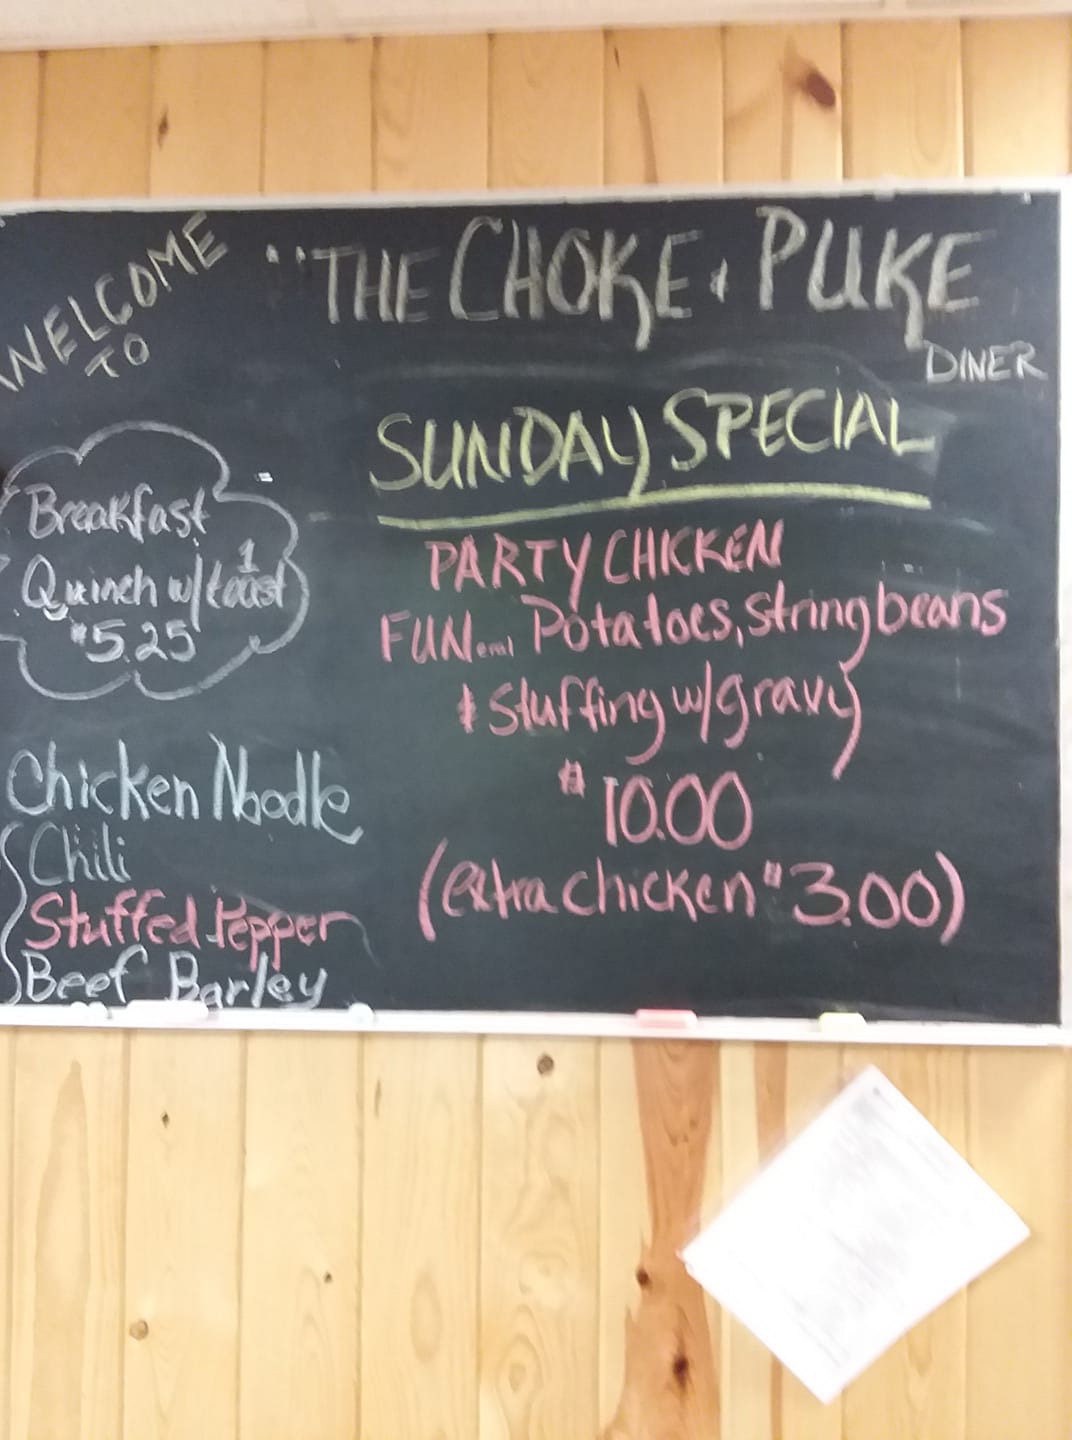 WELCOME
TO
"THE CHOKE & PUKE
DINER
SUNDAY SPECIAL
PARTY CHICKEN
FUN Potatoes, string beans
& stuffing w/gravy
$10.00
(extra chicken $3.00)
Breakfast
Quinch w/toast
$5.25
Chicken Noodle
Chili
Stuffed Pepper
Beef Barley